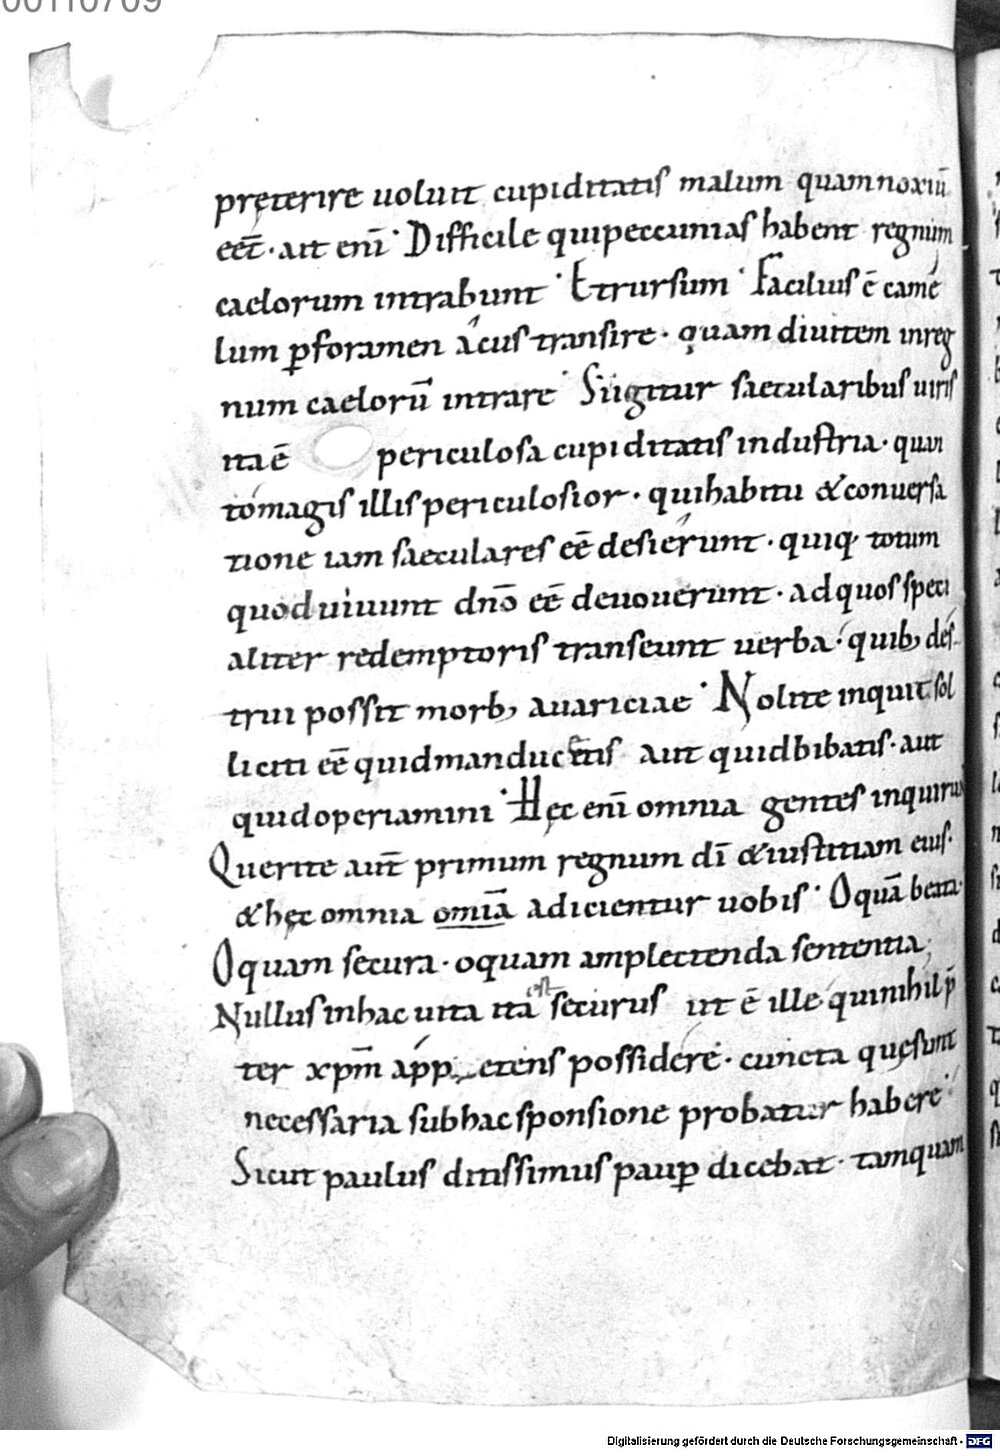 00110709
pręterire uoluit cupiditatis malum quam noxiū
eēt· ait enī· Difficile qui peccunias habent regnum
caelorum intrabunt· Et rursum· Facilius ē came
lum ꝑ foramen acus transire· quam diuitem inreg
num caelorū intrare· Si igitur saecularibus uiris
ita ē periculosa cupiditatis industria· quan
to magis illis periculosior· qui habitu &conuersa
tione iam saeculares eē desierunt· quiq· totum
quod uiuunt dnō eē deuouerunt· ad quos speci
aliter redemptoris transeunt uerba· quib; des
trui possit morb; auariciae· Nolite inquit sol
liciti eē quid manducetis aut quid bibatis· aut
quid operiamini· Hęc enī omnia gentes inquirunt
Querite aut̄ primum regnum dī &iustitiam eius·
&hęc omnia omīa adicientur uobis· O quā beata·
O quam secura· o quam amplectenda sententia,
Nullus in hac uita ita est securus ut ē ille qui nihil p̄
ter xpm̄ app etens possidere· cuncta quę sunt
necessaria sub hac sponsione probatur habere·
Sicut paulus ditissimus pauꝑ dicebat· tamquam
Digitalisierung gefördert durch die Deutsche Forschungsgemeinschaft - DFG